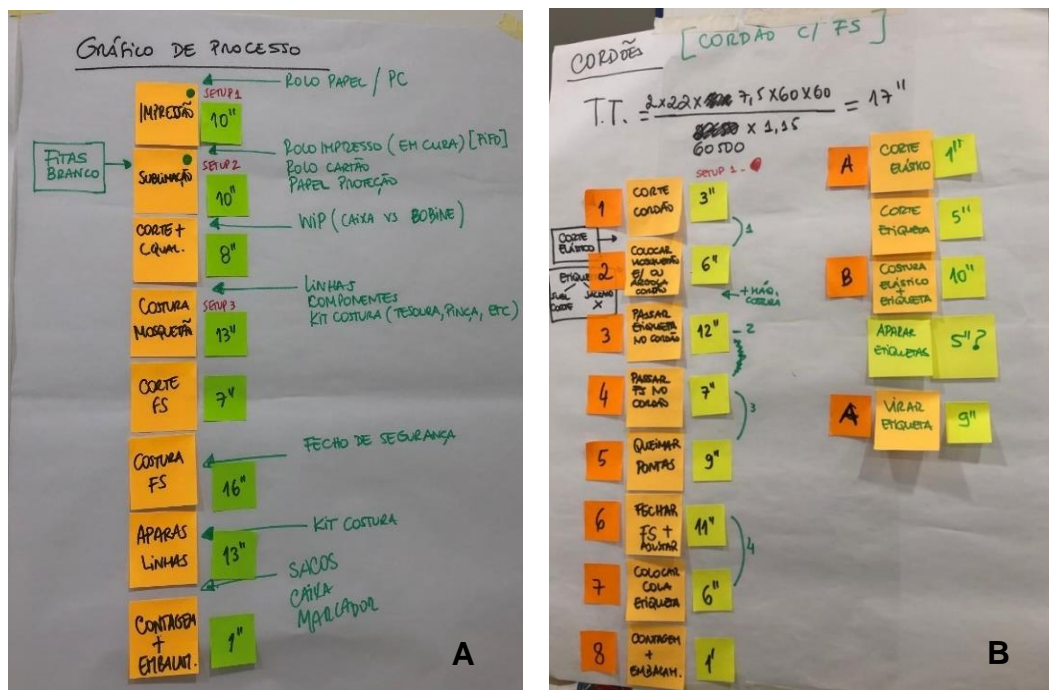 GRÁFICO DE PROCESSO
ROLO PAPEL / PC
SETUP 1
IMPRESSÃO
10"
FITAS
BRANCO
ROLO IMPRESSO (EM CURA) [FIFO]
ROLO CARTÃO
PAPEL PROTEÇÃO
SETUP 2
SUBLIMAÇÃO
10"
WIP (CAIXA VS BOBINE)
CORTE +
C.QUAL.
8"
LINHAS
COMPONENTES
KIT COSTURA (TESOURA, PINÇA, ETC)
SETUP 3
COSTURA
MOSQUETÃ
13"
CORTE
FS
7"
FECHO DE SEGURANÇA
COSTURA
FS
16"
KIT COSTURA
APARAS
LINHAS
13"
SACOS
CAIXA
MARCADOR
CONTAGEM
+
EMBALAM.
1"
A
CORDÕES [CORDÃO C/ FS]
T.T. = 2x22x 7,5x60x60 = 17"
x 1,15
60500
SETUP 1 -
1
CORTE
CORDÃO
3"
1
CORTE
ELÁSTICO
2
COLOCAR
MOSQUETÃO
E/ OU
ARGOLA
CORDÃO
6"
+ MÁQ.
COSTURA
ETIQUE
SUBL
CORTE X
3
PASSAR
ETIQUETA
NO CORDÃO
12"
- 2
4
PASSAR
FS NO
CORDÃO
7"
3
5
QUEIMAR
PONTAS
9"
6
FECHAR
FS +
AJUSTAR
11"
4
7
COLOCAR
COLA
ETIQUETA
6"
8
CONTAGEM
+
EMBALAM.
1'
A
CORTE
ELÁSTICO
1"
CORTE
ETIQUETA
5"
B
COSTURA
ELÁSTICO
+
ETIQUETA
10"
APARAR
ETIQUETAS
5"?
A
VIRAR
ETIQUETA
9"
B